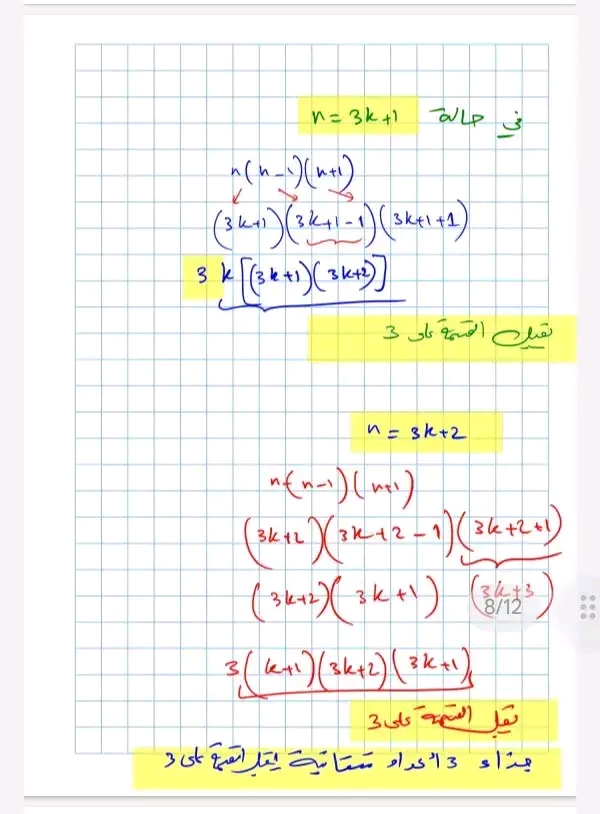 في حالة n = 3k+1
n(n-1)(n+1)
(3k+1)(3k+1-1)(3k+1+1)
3k[(3k+1)(3k+2)]
تقبل القسمة على 3
n = 3k+2
n(n-1)(n+1)
(3k+2)(3k+2-1)(3k+2+1)
(3k+2)(3k+1) (3k+3)
8/12
3(k+1)(3k+2)(3k+1)
تقبل القسمة على 3
جداء 3 أعداد متتالية يقبل القسمة على 3